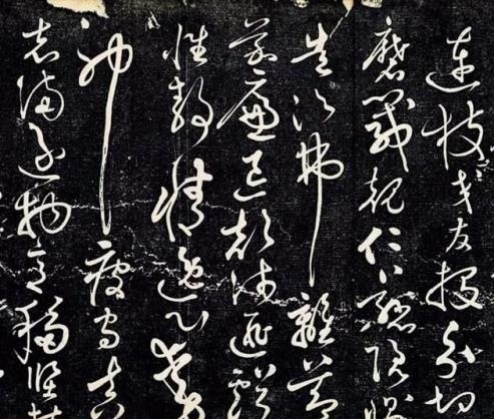 連枝交友投分切
磨箴規仁慈隱惻
造次弗離節
義廉退顛沛匪虧
性靜情逸心動
神疲守真
志滿逐物意移堅持